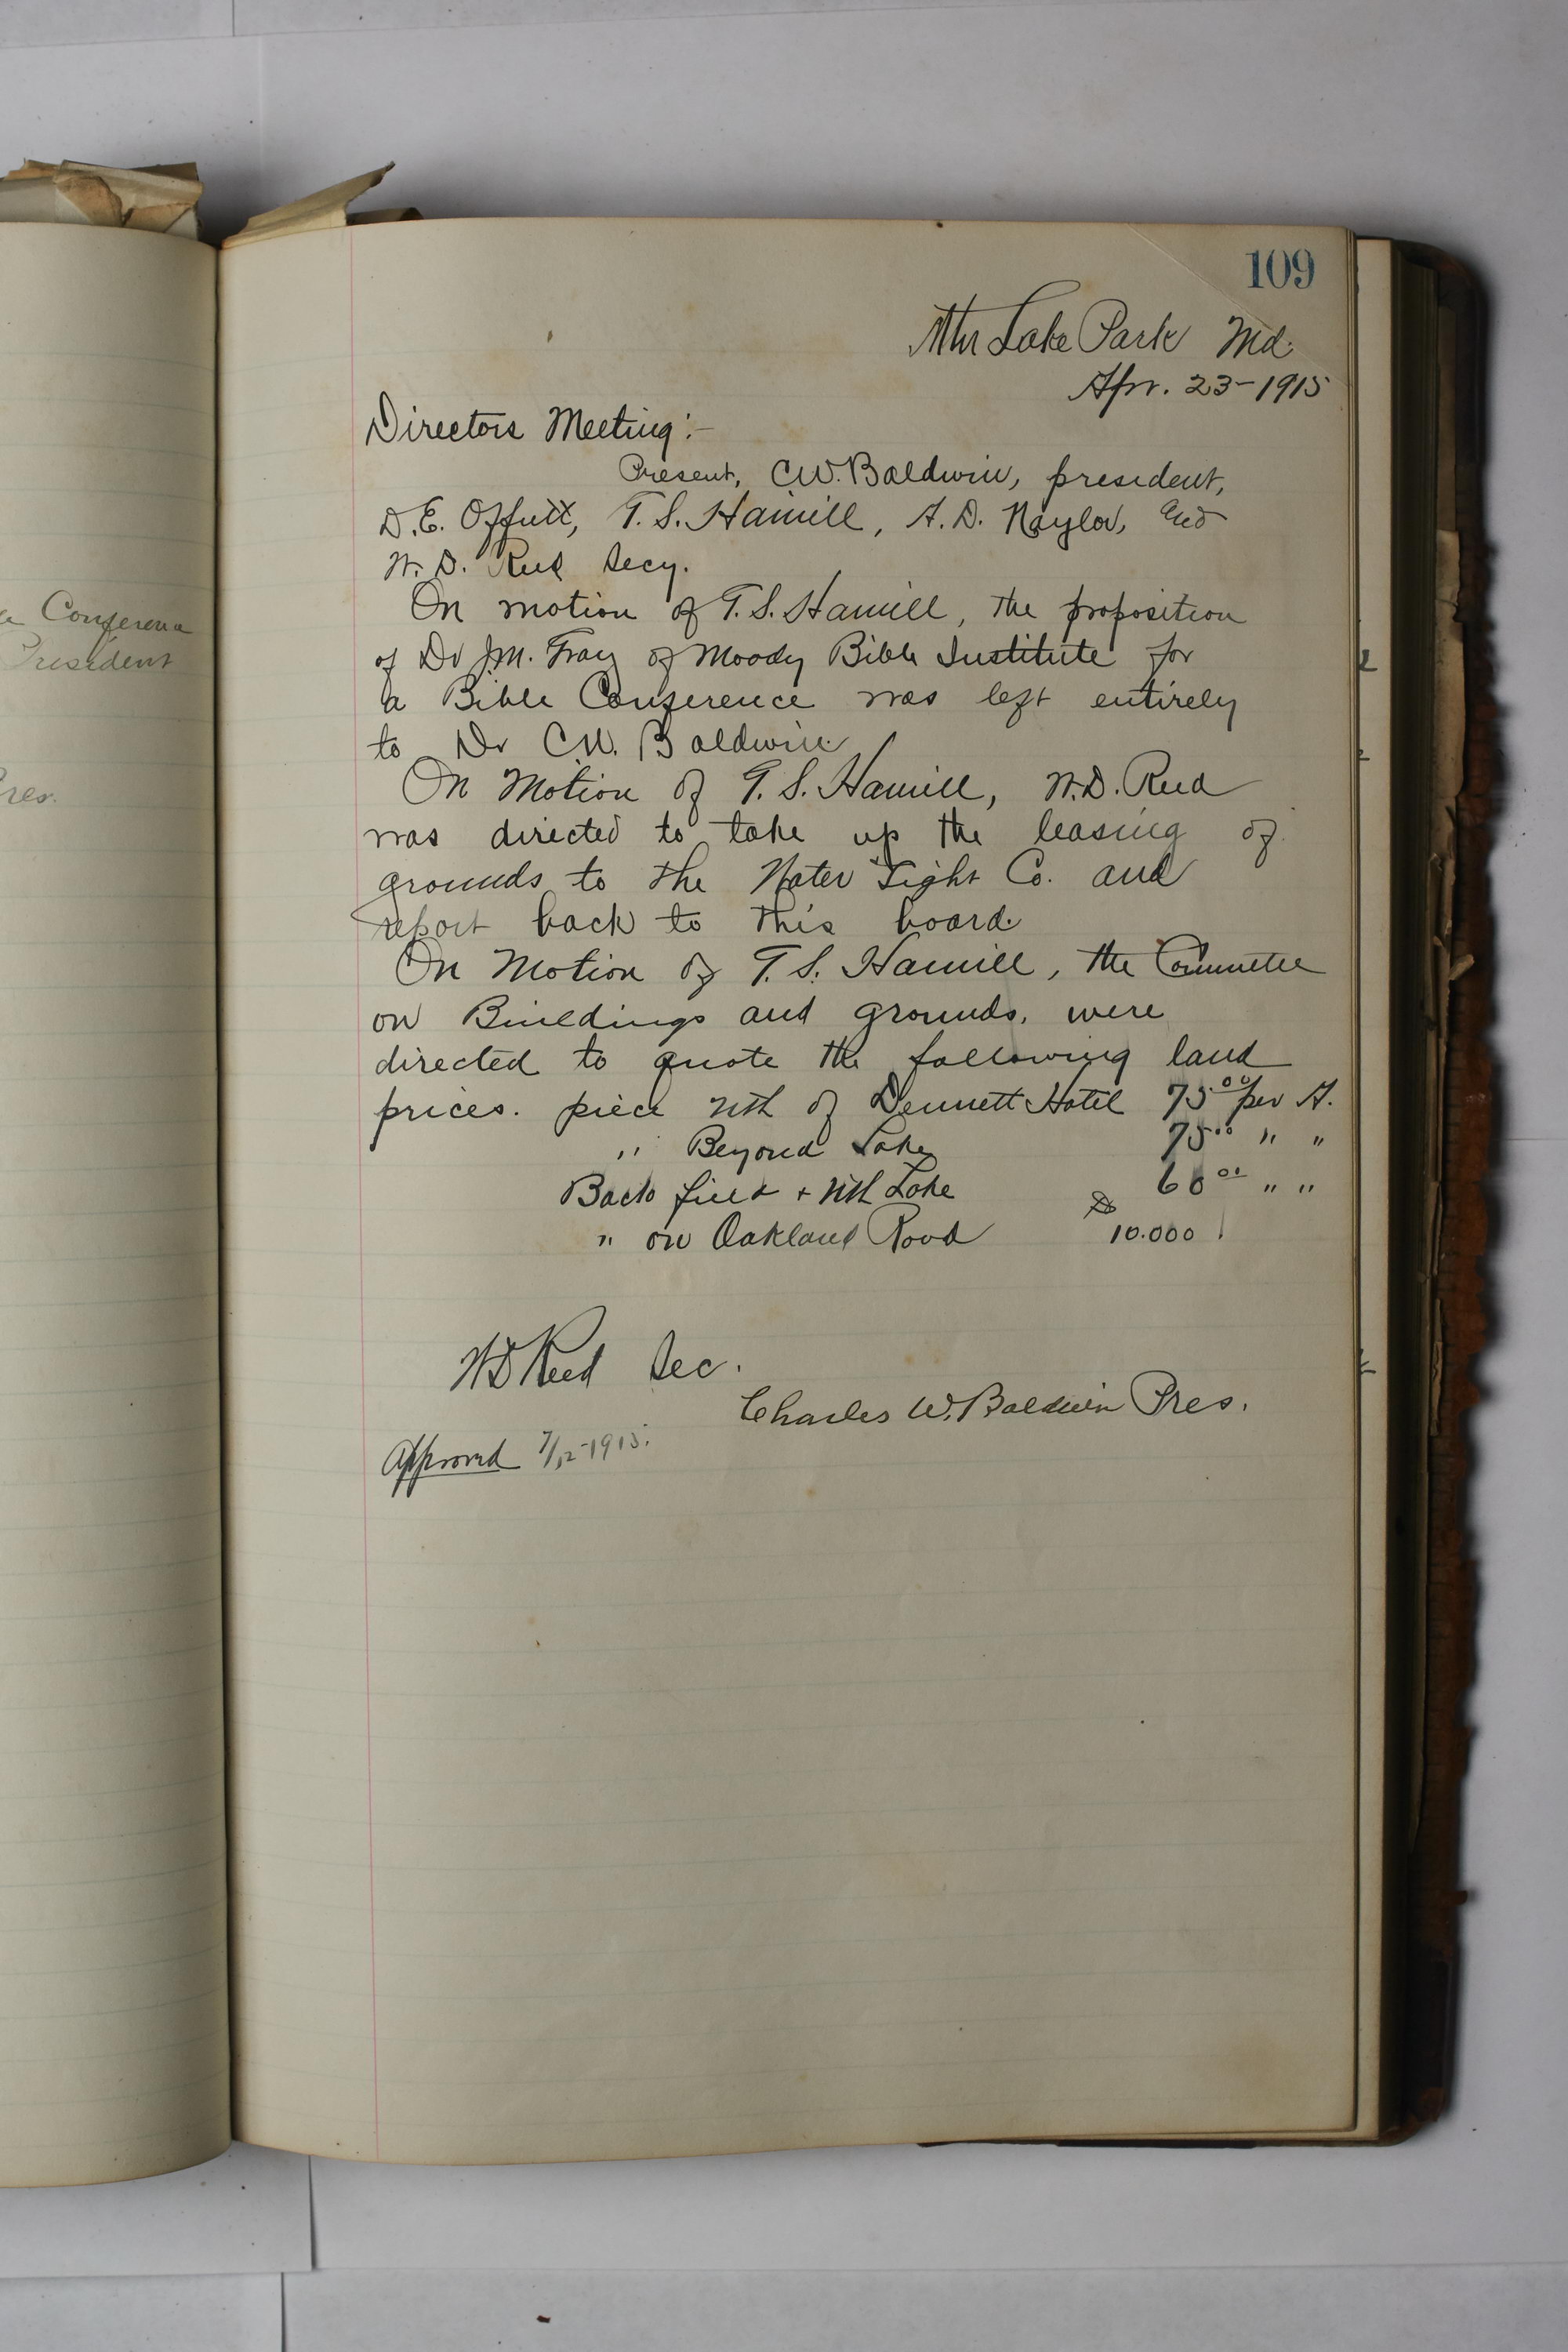 Conference
President
Pres.
109
Mtn Lake Park Md.
Apr. 23-1915
Directors Meeting:-
Present, C.W. Baldwin, president,
D.E. Offutt, T.S. Hamill, A.D. Naylor, and
W.D. Reed Secy.
On motion of T.S. Hamill, the proposition
of Dr J.M. Gray of Moody Bible Institute for
a Bible Conference was left entirely
to Dr C.W. Baldwin
On Motion of T.S. Hamill, W.D. Reed
was directed to take up the leasing of
grounds to the Water Light Co. and
report back to this board.
On Motion of T.S. Hamill, the Committee
on Buildings and grounds, were
directed to quote the following land
prices. piece nth of Dennett Hotel 75.00 per A.
" Beyond Lake 75.00 " "
Back field + nth Lake 60.00 " "
" on Oakland Road 10.000
W D Reed Sec.
Charles W. Baldwin Pres.
Approved 7/12-1915.